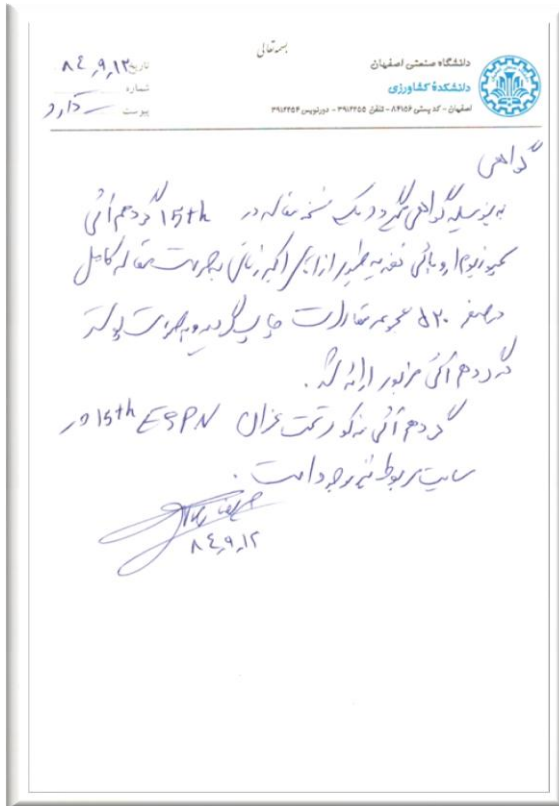 بسمه تعالی
دانشگاه صنعتی اصفهان
دانشکدهٔ کشاورزی
اصفهان - کد پستی ۸۴۱۵۶ - تلفن ۳۹۱۲۲۵۵ - دورنویس ۳۹۱۲۲۵۴
تاریخ ۸۴,۹,۱۲
شماره
پیوست دارد
گواهی
بدینوسیله گواهی میگردد یک نسخه مقاله در 15th گردهم آئی
سمپوزیوم اروپائی تغذیه طیور از اکبر زمانی بصورت مقاله کامل
در صفحه ۵۲۰ مجموعه مقالات چاپ گردید و بصورت پوستر
در گردهم آئی مزبور ارائه شد.
گردهم آئی مذکور تحت عنوان 15th ESPN در
سایت مربوطه نیز وجود دارد.
۸۴,۹,۱۲